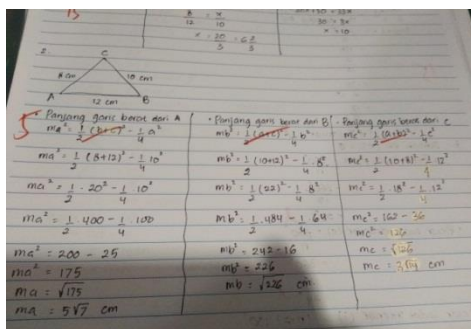 15
8/12 = x/10
30 = 3x
x = 20/3 = 6 2/3
x = 10
2.
C
8 cm
10 cm
A
12 cm
B
5
Panjang garis berat dari A
ma² = 1/2 (b+c)² - 1/4 a²
ma² = 1/2 (8+12)² - 1/4 10²
ma² = 1/2 . 20² - 1/4 . 10²
ma² = 1/2 . 400 - 1/4 . 100
ma² = 200 - 25
ma² = 175
ma = √175
ma = 5√7 cm
• Panjang garis berat dari B
mb² = 1/2 (a+c)² - 1/4 b²
mb² = 1/2 (10+12)² - 1/4 . 8²
mb² = 1/2 (22)² - 1/4 8²
mb² = 1/2 . 484 - 1/4 64
mb² = 242 - 16
mb² = 226
mb = √226 cm
• Panjang garis berat dari C
mc² = 1/2 (a+b)² - 1/4 c²
mc² = 1/2 (10+8)² - 1/4 12²
mc² = 1/2 . 18² - 1/4 . 12²
mc² = 162 - 36
mc² = 126
mc = √126
mc = 3√14 cm